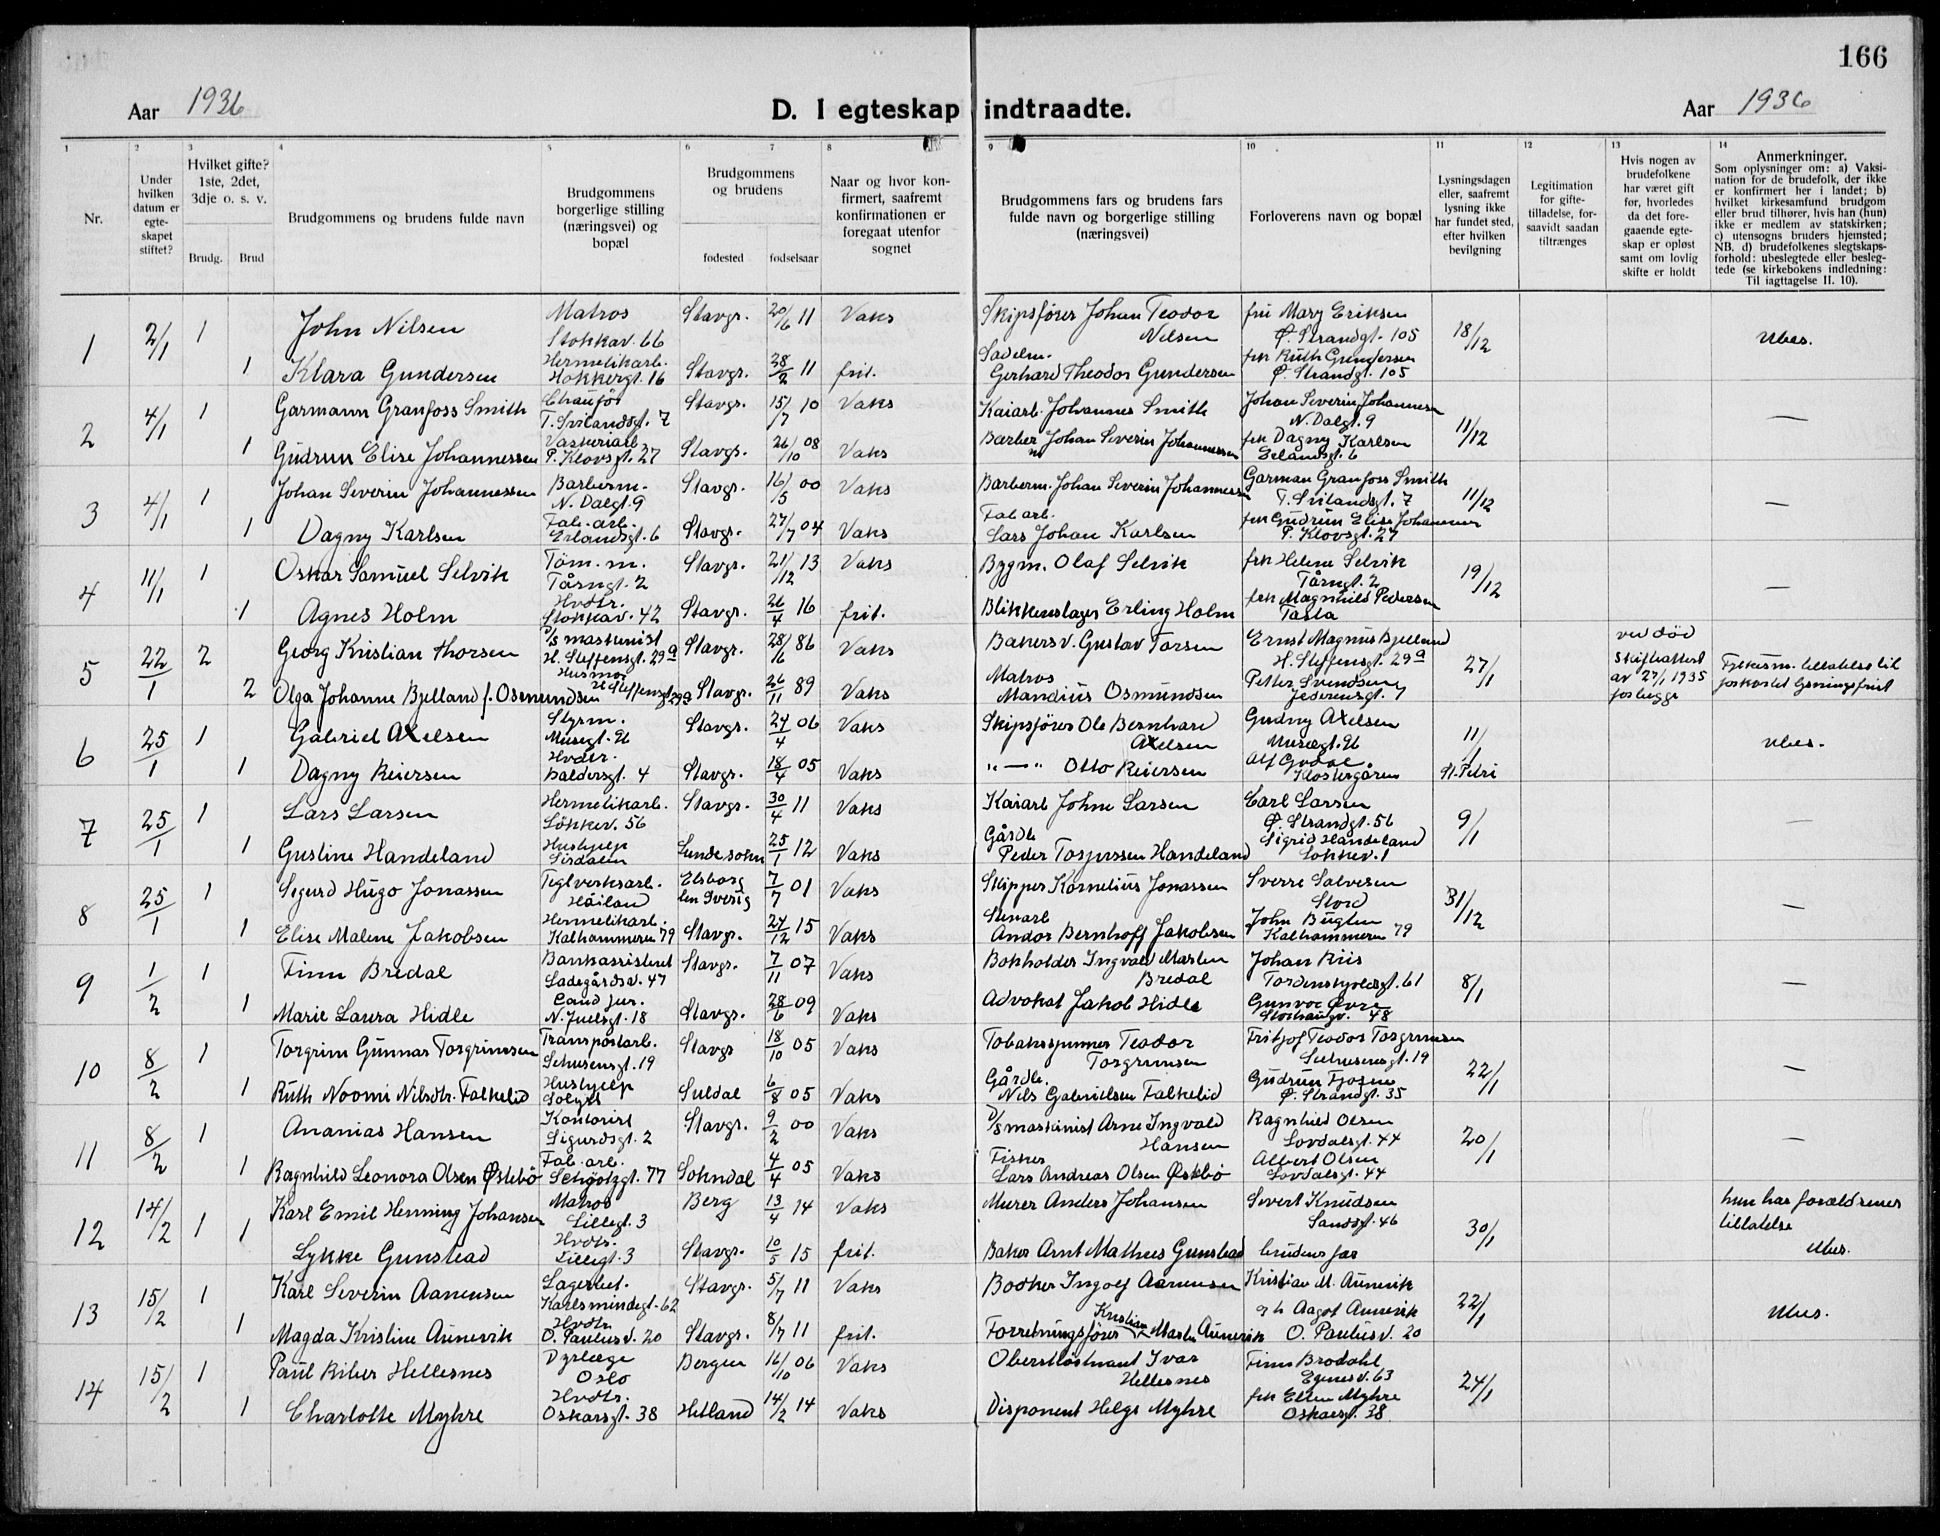 166
Aar 1936
D. I egteskap indtraadte.
Aar 1936
1
Nr.
2
Under hvilken datum er egte-skapet stiftet?
3
Hvilket gifte? 1ste, 2det, 3dje o. s. v.
Brudg. Brud
4
Brudgommens og brudens fulde navn
5
Brudgommens borgerlige stilling (næringsvei) og bopæl
6 7
Brudgommens og brudens
fødested fødselsaar
8
Naar og hvor kon-firmert, saafremt konfirmationen er foregaat utenfor sognet
9
Brudgommens fars og brudens fars fulde navn og borgerlige stilling (næringsvei)
10
Forloverens navn og bopæl
11
Lysningsdagen eller, saafremt lysning ikke har fundet sted, efter hvilken bevilgning
12
Legitimation for gifte-tilladelse, for-saavidt saadan tiltrænges
13
Hvis nogen av brudefolkene har været gift før, hvorledes da det fore-gaaende egte-skap er opløst samt om lovlig skifte er holdt
14
Anmerkninger.
Som oplysninger om: a) Vaksi-nation for de brudefolk, der ikke er konfirmert her i landet; b) hvilket kirkesamfund brudgom eller brud tilhører, hvis han (hun) ikke er medlem av statskirken; c) utensogns bruders hjemsted; NB. d) brudefolkenes slegtskaps-forhold: ubeslegtede eller besleg-tede (se kirkebokens indledning: Til iagttagelse II. 10).
1 2/1 1 John Nilsen Matros Stokkav. 66 Stavgr. 20/6 11 Vaks Skipsfører Johan Teodor Nilsen fru Mary Eriksen Ø. Strandgt. 105 18/12 Ubes.
1 Klara Gundersen Hermetikarb. Hokkergt. 16 Stavgr. 28/2 11 frit. Sadelm. Gerhard Theodor Gundersen frk Ruth Gundersen Ø. Strandgt. 105
2 4/1 1 Garmann Granfoss Smith Chaufør T. Svilandsgt. 7 Stavgr. 15/7 10 Vaks Kaiarb. Johannes Smith Johan Severin Johannesen N. Dalgt. 9 11/12 —
1 Gudrun Elise Johannessen Vaskeriarb. P. Klovsgt. 27 Stavgr. 26/10 08 Vaks Barber m Johan Severin Johannessen frk Dagny Karlsen Erlandsgt. 6
3 4/1 1 Johan Severin Johannessen Barberm. N. Dalgt. 9 Stavgr. 16/5 00 Vaks Barberm. Johan Severin Johannessen Garman Granfoss Smith T. Svilandsgt. 7 11/12 —
1 Dagny Karlsen Fab. arb. Erlandsgt. 6 Stavgr. 27/7 04 Vaks Fab arb. Lars Johan Karlsen frk Gudrun Elise Johannesen P. Klovsgt. 27
4 11/1 1 Oskar Samuel Selvik Tøm. m. Tårngt. 2 Stavgr. 21/12 13 Vaks Bygm. Olaf Selvik frk Helene Selvik Tårngt. 2 19/12 —
1 Agnes Holm Hvdtr. Stokkav. 42 Stavgr. 26/4 16 frit. Blikkenslager Erling Holm frk Magnhild Pedersen Tasta
5 22/1 2 Georg Kristian Thorsen D/S maskinist H. Steffensgt. 29a Stavgr. 28/6 86 Vaks Bakersv. Gustav Torsen Ernst Magnus Bjelland H. Steffensgt. 29a 27/1 ved død Skifteattest av 27/1 1935 forligge Fylkesm. tillatelse til forkortet lysningsfrist
2 Olga Johanne Bjelland f. Osmundsen Husmor H Steffensgt 29a Stavgr. 26/11 89 Vaks Matros Mandius Osmundsen Petter Svendsen Jederensgt. 7
6 25/1 1 Gabriel Axelsen Styrm. Musegt. 96 Stavgr. 24/4 06 Vaks Skipsfører Ole Bernhard Axelsen Gudny Axelsen Musegt. 96 11/1 St. Petri Ubes.
1 Dagny Reiersen Hvdtr. Baldersgt. 4 Stavgr. 18/4 05 Vaks "—" Otto Reiersen Alf Gvdal Klostergåren
7 25/1 1 Lars Larsen Hermetikarb. Løkkev. 56 Stavgr. 30/4 11 Vaks Kaiarb Johne Larsen Carl Larsen Ø. Strandgt. 56 9/1 —
1 Gustine Handeland Hushjelp Sirdalen Lunde sokn 25/1 12 Vaks Gårdb Peder Tosperssen Handeland Sigrid Handeland Løkkev. 1
8 25/1 1 Sigurd Hugo Jonassen Teglverksarb. Håiland Elsborg len Sverig 7/7 01 Vaks Skipper Kornelius Jonassen Sverre Salvesen Stord 31/12 —
1 Elise Malene Jakobsen Hermetikarb. Kalhammeren 79 Stavgr. 27/12 15 Vaks Stenarb Andor Bernhoff Jakobsen John Bugten Kalhammeren 79
9 1/2 1 Finn Bredal Bankassistent Ladegårdsv. 47 Stavgr. 7/11 07 Vaks Bokholder Ingvald Marten Bredal Johan Riis Tordenskjoldsgt. 61 8/1 —
1 Marie Laura Hidle Cand jur. N. Juelsgt. 18 Stavgr. 28/6 09 Vaks Advokat Jakob Hidle Gunvor Øvre Storhaugv. 48
10 8/2 1 Torgrim Gunnar Torgrimsen Transportarb. Sehusensgt. 19 Stavgr 18/10 05 Vaks Tobaksspinner Teodor Torgrimsen Fritjof Teodor Torgrimsen Sehusensgt. 19 22/1 —
1 Ruth Noomi Nilsdtr. Falkelid Hushjelp Solgt Suldal 6/8 05 Vaks Gårdb. Nils Gabrielsen Falkelid Gudrun Fjogne Ø. Strandgt. 35
11 8/2 1 Ananias Hansen Kontorist Sigurdsgt. 2 Stavgr. 9/2 00 Vaks D/S maskinist Arne Ingvald Hansen Ragnhild Olsen Lovdalsgt. 44 20/1 —
1 Ragnhild Leonora Olsen Østebø Fab. arb. Schjøtzgt. 77 Sokndal 4/4 05 Vaks Fisker Lars Andreas Olsen Østebø Albert Olsen Lovdalsgt. 44
12 14/2 1 1 Karl Emil Henning Johansen Matros Lillegt. 3 Berg 13/4 14 Vaks Murer Anders Johansen Sivert Knudsen Sandsgt. 46 30/1 hun har forældrenes tillatelse Ubes.
Lykke Gunstead Hvdtr. Lillegt. 3 Stavgr. 10/5 15 frit. Baker Arnt Matheus Gunstead brudens far
13 15/2 1 Karl Severin Aanensen Lagerbet. Karlsmindegt. 62 Stavgr. 5/7 11 Vaks Bødker Ingolf Aanensen Kristian M. Aunevik 22/1 Ubes.
1 Magda Kristine Aunevik Hvdtr. O. Paulus v. 20 Stavgr. 8/7 11 frit. Forretningsfører Kristian Martin Aunevik og Aagot Aunevik O. Paulus v. 20
14 15/2 1 Paul Riber Hellesnes Dyrlæge Oslo Bergen 16/10 06 Vaks Oberstløitnant Ivar Hellesnes Finn Brodahl Egnes v. 63 24/1
1 Charlotte Myhre Hvdtr. Oskarsgt. 38 Hetland 14/2 14 Vaks Disponent Helge Myhre frk Ellen Myhre Oskarsgt. 38